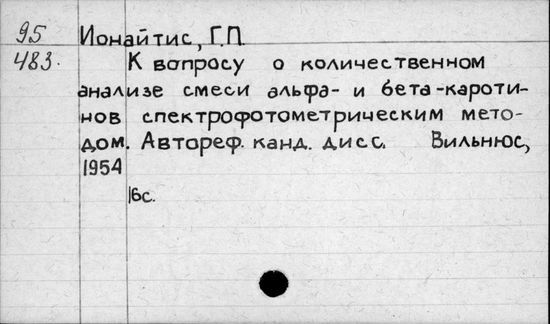 95 Ионайтис, Г.П.
483. К вопросу о количественном
анализе смеси альфа- и бета-кароти-
нов спектрофотометрическим мето-
дом. Автореф. канд. дисс. Вильнюс,
1954
16с.